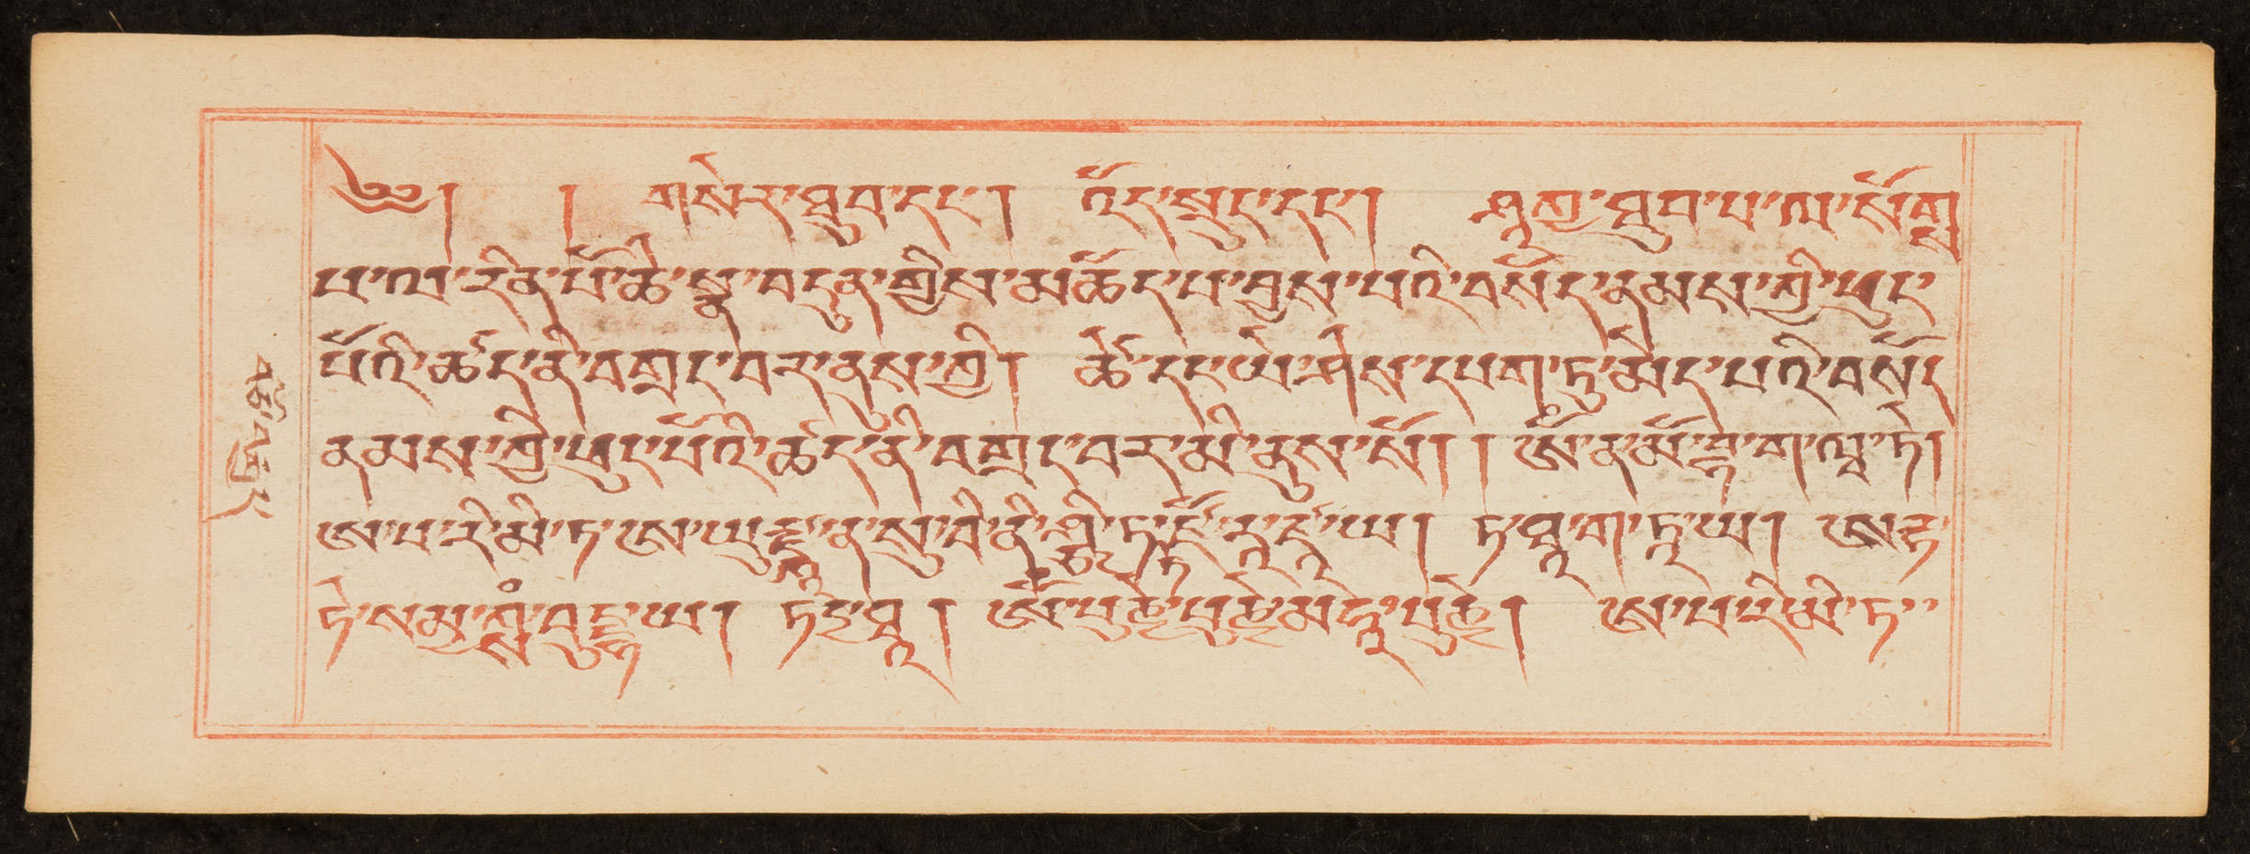 ༄། ། གསེར་ཐུབ་དང༌། འོད་སྲུང་དང༌། ཤཱཀྱ་ཐུབ་པ་ལ་སོགས
པ་ལ་རིན་པོ་ཆེ་སྣ་བདུན་གྱིས་མཆོད་པ་བྱས་པའི་བསོད་ནམས་ཀྱི་ཕུང་
པོའི་ཚད་ནི་བགྲང་བར་ནུས་ཀྱི། ཚེ་དང་ཡེ་ཤེས་དཔག་ཏུ་མེད་པའི་བསོད
ནམས་ཀྱི་ཕུང་པོའི་ཚད་ནི་བགྲང་བར་མི་ནུས་སོ། ། ཨོཾ་ན་མོ་བྷ་ག་ཝ་ཏེ།
ཨ་པ་རི་མི་ཏ་ཨ་ཡུརྫྙཱ་ན་སུ་བི་ནི་ཤྩི་ཏ་ཏེ་ཛོ་རཱ་ཛཱ་ཡ། ཏ་ཐཱ་ག་ཏཱ་ཡ། ཨརྷ
ཏེ་སམྱཀྶཾ་བུདྡྷ་ཡ། ཏདྱ་ཐཱ། ཨོཾ་པུཎྱེ་པུཎྱེ་མ་ཧཱ་པུཎྱེ། ཨ་པ་རི་མི་ཏ་